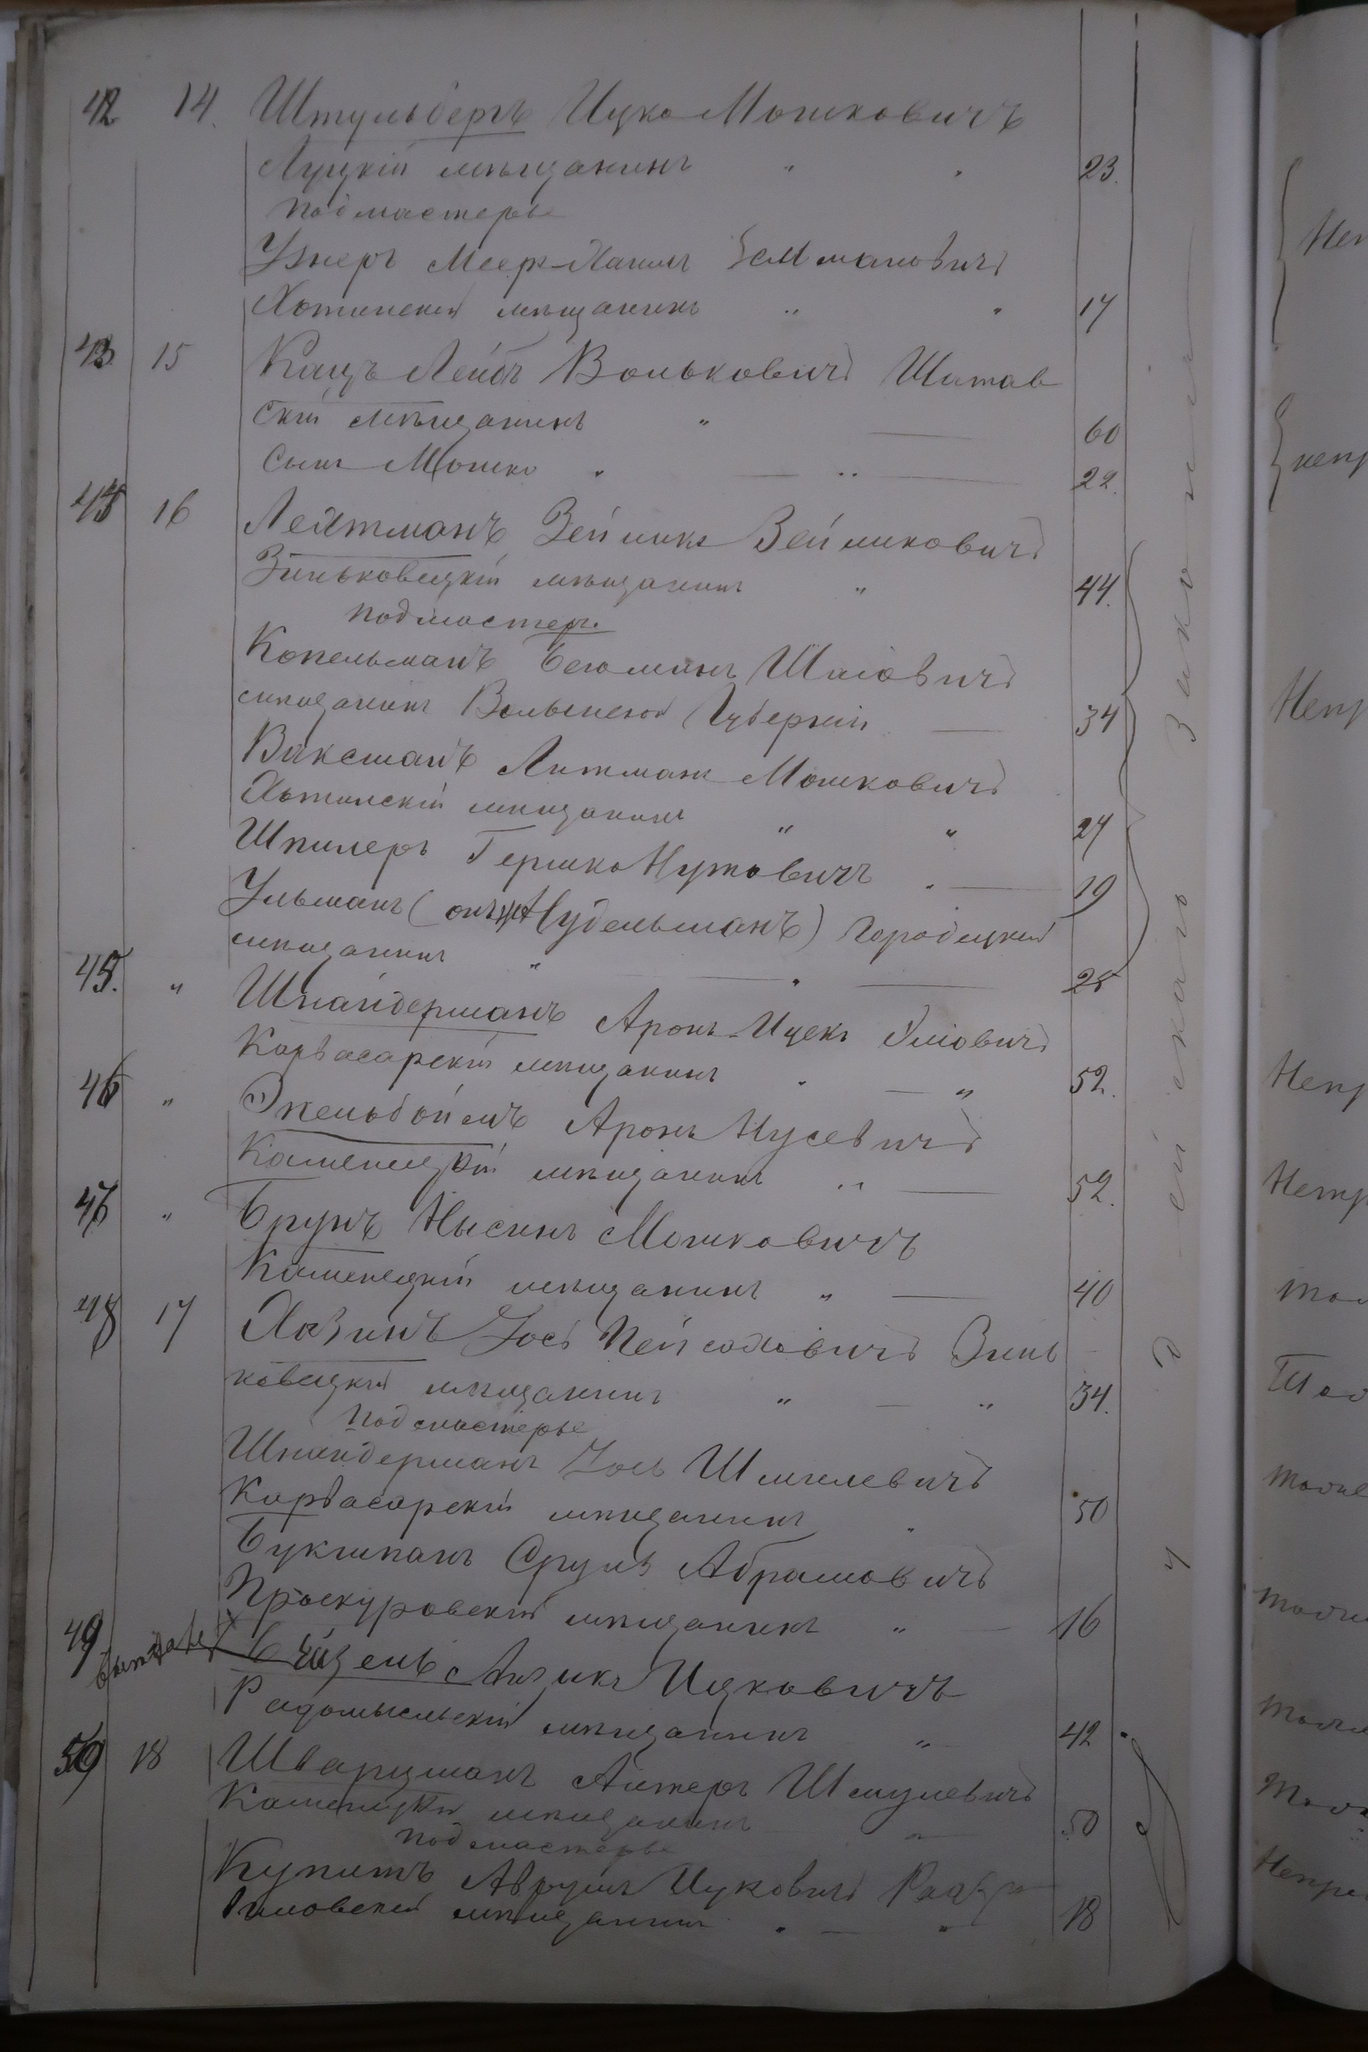 42 14. Штульберъ Ицко Мошковичъ
Луцкій мѣщанинъ " " 23.
Подмастерье
Узнеръ Меер-Хаимъ Зельмановичъ
Хотинскій мѣщанинъ " " 17
43 15 Кацъ Лейбъ Вольковичъ Шатав
скій мѣщанинъ " — 60
Сынъ Мошко " — " — 22.
44 16 Лехтманъ Зейликъ Зейликовичъ
Зиньковецкій мѣщанинъ " 44.
Подмастер.
Копельманъ Беюминъ Шаіовичъ
мѣщанинъ Волынской Губерніи — 34
Ваксманъ Литманъ Мошковичъ
Хотинскій мѣщанинъ " " 27
Шпилеръ Гершко Нутовичъ " — 19
Ульманъ (онъ же Нудельманъ) Городецкій
мѣщанинъ " — " — 28
45. " Шнайдерманъ Аронъ-Ицекъ Уліовичъ
Карвасарскій мѣщанинъ " — " 52.
46 " Экельбоймъ Аронъ Нусевичъ
Каменецкій мѣщанинъ " — 52.
47 " Брунъ Нысинъ Мошковичъ
Каменецкій мѣщанинъ " — 40
48 17 Хазинъ Іось Пейсаховичъ Зинь
ковецкій мѣщанинъ " — " 34.
Подмастерье
Шнайдерманъ Іось Шмилевичъ
Карвасарскій мѣщанинъ " 50
Букшпанъ Сруль Абрамовичъ
Проскуровскій мѣщанинъ " — 16
49 Бейзель Айзикъ Ицковичъ
Радомысльскій мѣщанинъ " 42
50 18 Шварцманъ Алтеръ Шмулевичъ
Каменецкій мѣщанинъ " 50
Подмастерье
Купитъ Аврумъ Ицковичъ
мѣщанинъ " — " 18